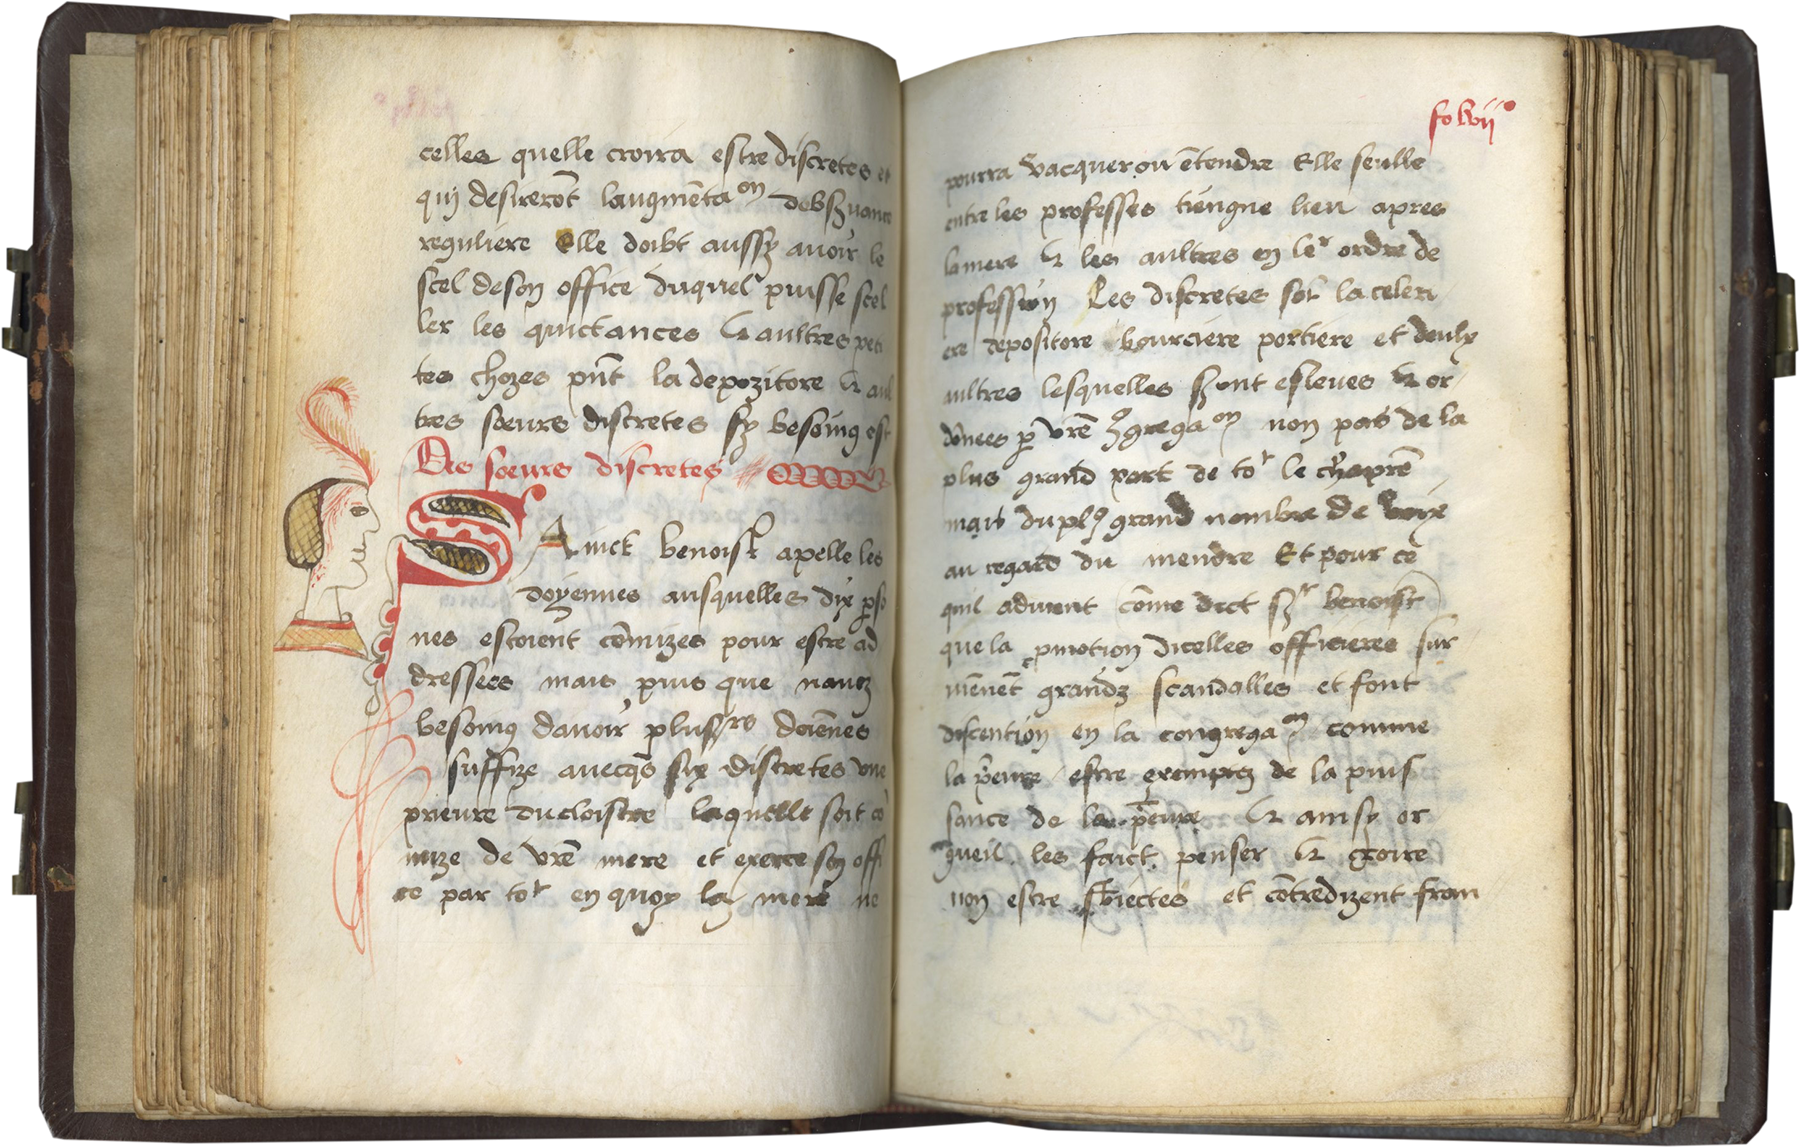 celles quelle croira estre discretes et
qui desirerōt laugmētaon dobs̄uance
reguliere Elle doibt aussy auoir le
scel de son office duquel puisse scel
ler les quictances & aultres peti
tes chozes pn̄t la depozitore & aul
tres soeurs discretes sy besoing est
Des soeurs discretes
SAinct benoist apelle les
doyennes ausquelles dix pso
nes estoient cōmizes pour estre ad
dressees mais puis que nauez
besoing dauoir plusrs doiēnes
suffize auecqs six discretes vne
prieure du cloistre laquelle soit cō
mize de vrē mere et exerce son offi
ce par tor en quoy la mere ne
fo lvii
pourra vacquer ou ētendre Elle seulle
entre les professes tiengne lieu apres
la mere & les aultres en ler ordre de
profession Les discretes sōt la celeri
ere depositore bourciere portiere et deulx
aultres lesquelles s̄ont esleues & or
dōnees p vrē 9gregaon non pas de la
plus grand part de tor le chapre
mais du pl9 grand nombre de voix
au regard du mendre Et pour ce
quil aduient cōme dict sr benoist
que la pmotion dicelles officieres sur
uiēnēt grandz scandalles et font
discention en la congregaon comme
la pēure estre exemptz de la puis
sance de la pēure & ainsy or
gueil les faict penser & croire
non estre sbiectes et cōtredizent fran